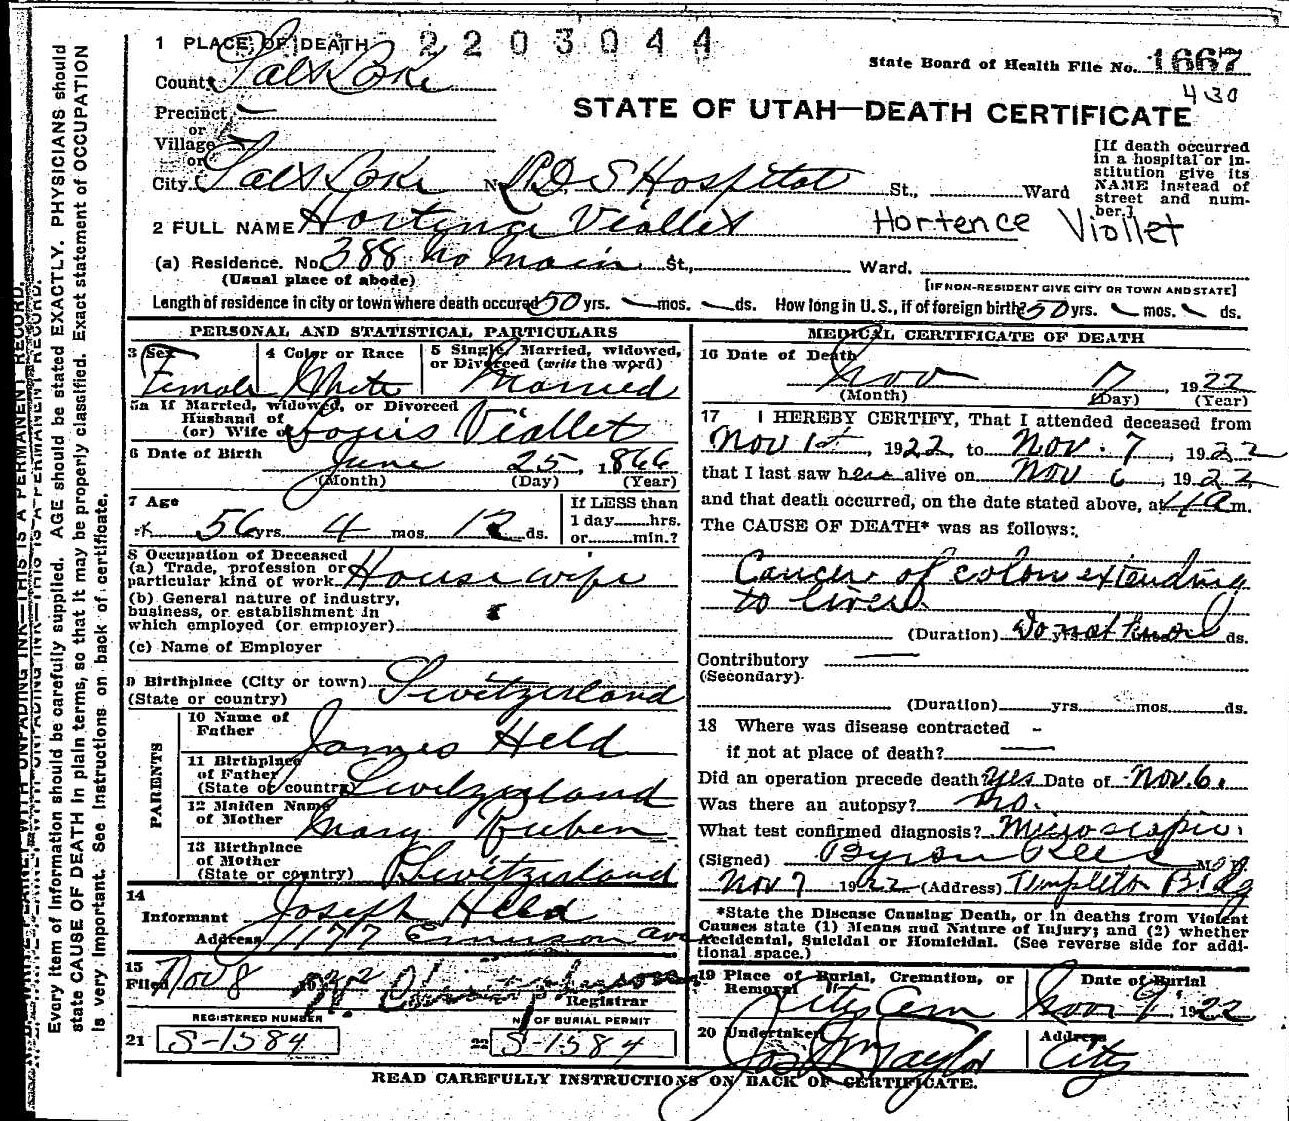 1 PLACE OF DEATH 2203044
State Board of Health File No. 1667
County Salt Lake
430
STATE OF UTAH—DEATH CERTIFICATE
Precinct —
or
Village —
or
City Salt Lake No. L D S Hospital St., Ward
[If death occurred in a hospital or institution give its NAME instead of street and number.]
2 FULL NAME Hortence Viollet Hortence Viollet
(a) Residence. No. 388 No Main St., Ward.
(Usual place of abode) [IF NON-RESIDENT GIVE CITY OR TOWN AND STATE]
Length of residence in city or town where death occured 50 yrs. — mos. — ds. How long in U.S., if of foreign birth? 50 yrs. — mos. — ds.
PERSONAL AND STATISTICAL PARTICULARS
3 Sex
Female
4 Color or Race
White
5 Single, Married, widowed, or Divorced (write the word)
Married
5a If Married, widowed, or Divorced
Husband of
(or) Wife of Louis Viallet
6 Date of Birth June 25, 1866
(Month) (Day) (Year)
7 Age
56 yrs 4 mos 12 ds.
If LESS than
1 day hrs.
or min.?
8 Occupation of Deceased
(a) Trade, profession or
particular kind of work House wife
(b) General nature of industry,
business, or establishment in
which employed (or employer)
(c) Name of Employer
9 Birthplace (City or town) Switzerland
(State or country)
PARENTS
10 Name of
Father James Held
11 Birthplace
of Father
(State or country) Switzerland
12 Maiden Name
of Mother Mary Ruben
13 Birthplace
of Mother
(State or country) Switzerland
14
Informant Joseph Held
Address 1177 Emerson Ave
15
Filed Nov 8 1922
Registrar
REGISTERED NUMBER
21 S-1584
NO OF BURIAL PERMIT
22 S-1584
MEDICAL CERTIFICATE OF DEATH
16 Date of Death
Nov 7, 1922
(Month) (Day) (Year)
17 I HEREBY CERTIFY, That I attended deceased from
Nov 1st, 1922, to Nov. 7, 1922
that I last saw her alive on Nov 6, 1922,
and that death occurred, on the date stated above, at 4 a m.
The CAUSE OF DEATH* was as follows:
Cancer of colon extending
to liver.
(Duration) Do not know yrs. ds.
Contributory —
(Secondary)
(Duration) yrs. mos. ds.
18 Where was disease contracted -
if not at place of death? —
Did an operation precede death yes Date of Nov. 6.
Was there an autopsy? no.
What test confirmed diagnosis? Microscopic.
(Signed) Byron Rees M D
Nov 7 1922 (Address) Templeton Bldg
*State the Disease Causing Death, or in deaths from Violent
Causes state (1) Means and Nature of Injury; and (2) whether
Accidental, Suicidal or Homicidal. (See reverse side for addi-
tional space.)
19 Place of Burial, Cremation, or
Removal City Cem
Date of Burial
Nov 9, 1922
20 Undertaker Jos Wm Taylor
Address
City
READ CAREFULLY INSTRUCTIONS ON BACK OF CERTIFICATE.
N. B. WRITE PLAINLY, WITH UNFADING INK—THIS IS A PERMANENT RECORD.
Every item of information should be carefully supplied. AGE should be stated EXACTLY. PHYSICIANS should
state CAUSE OF DEATH in plain terms, so that it may be properly classified. Exact statement of OCCUPATION
is very important. See instructions on back of certificate.